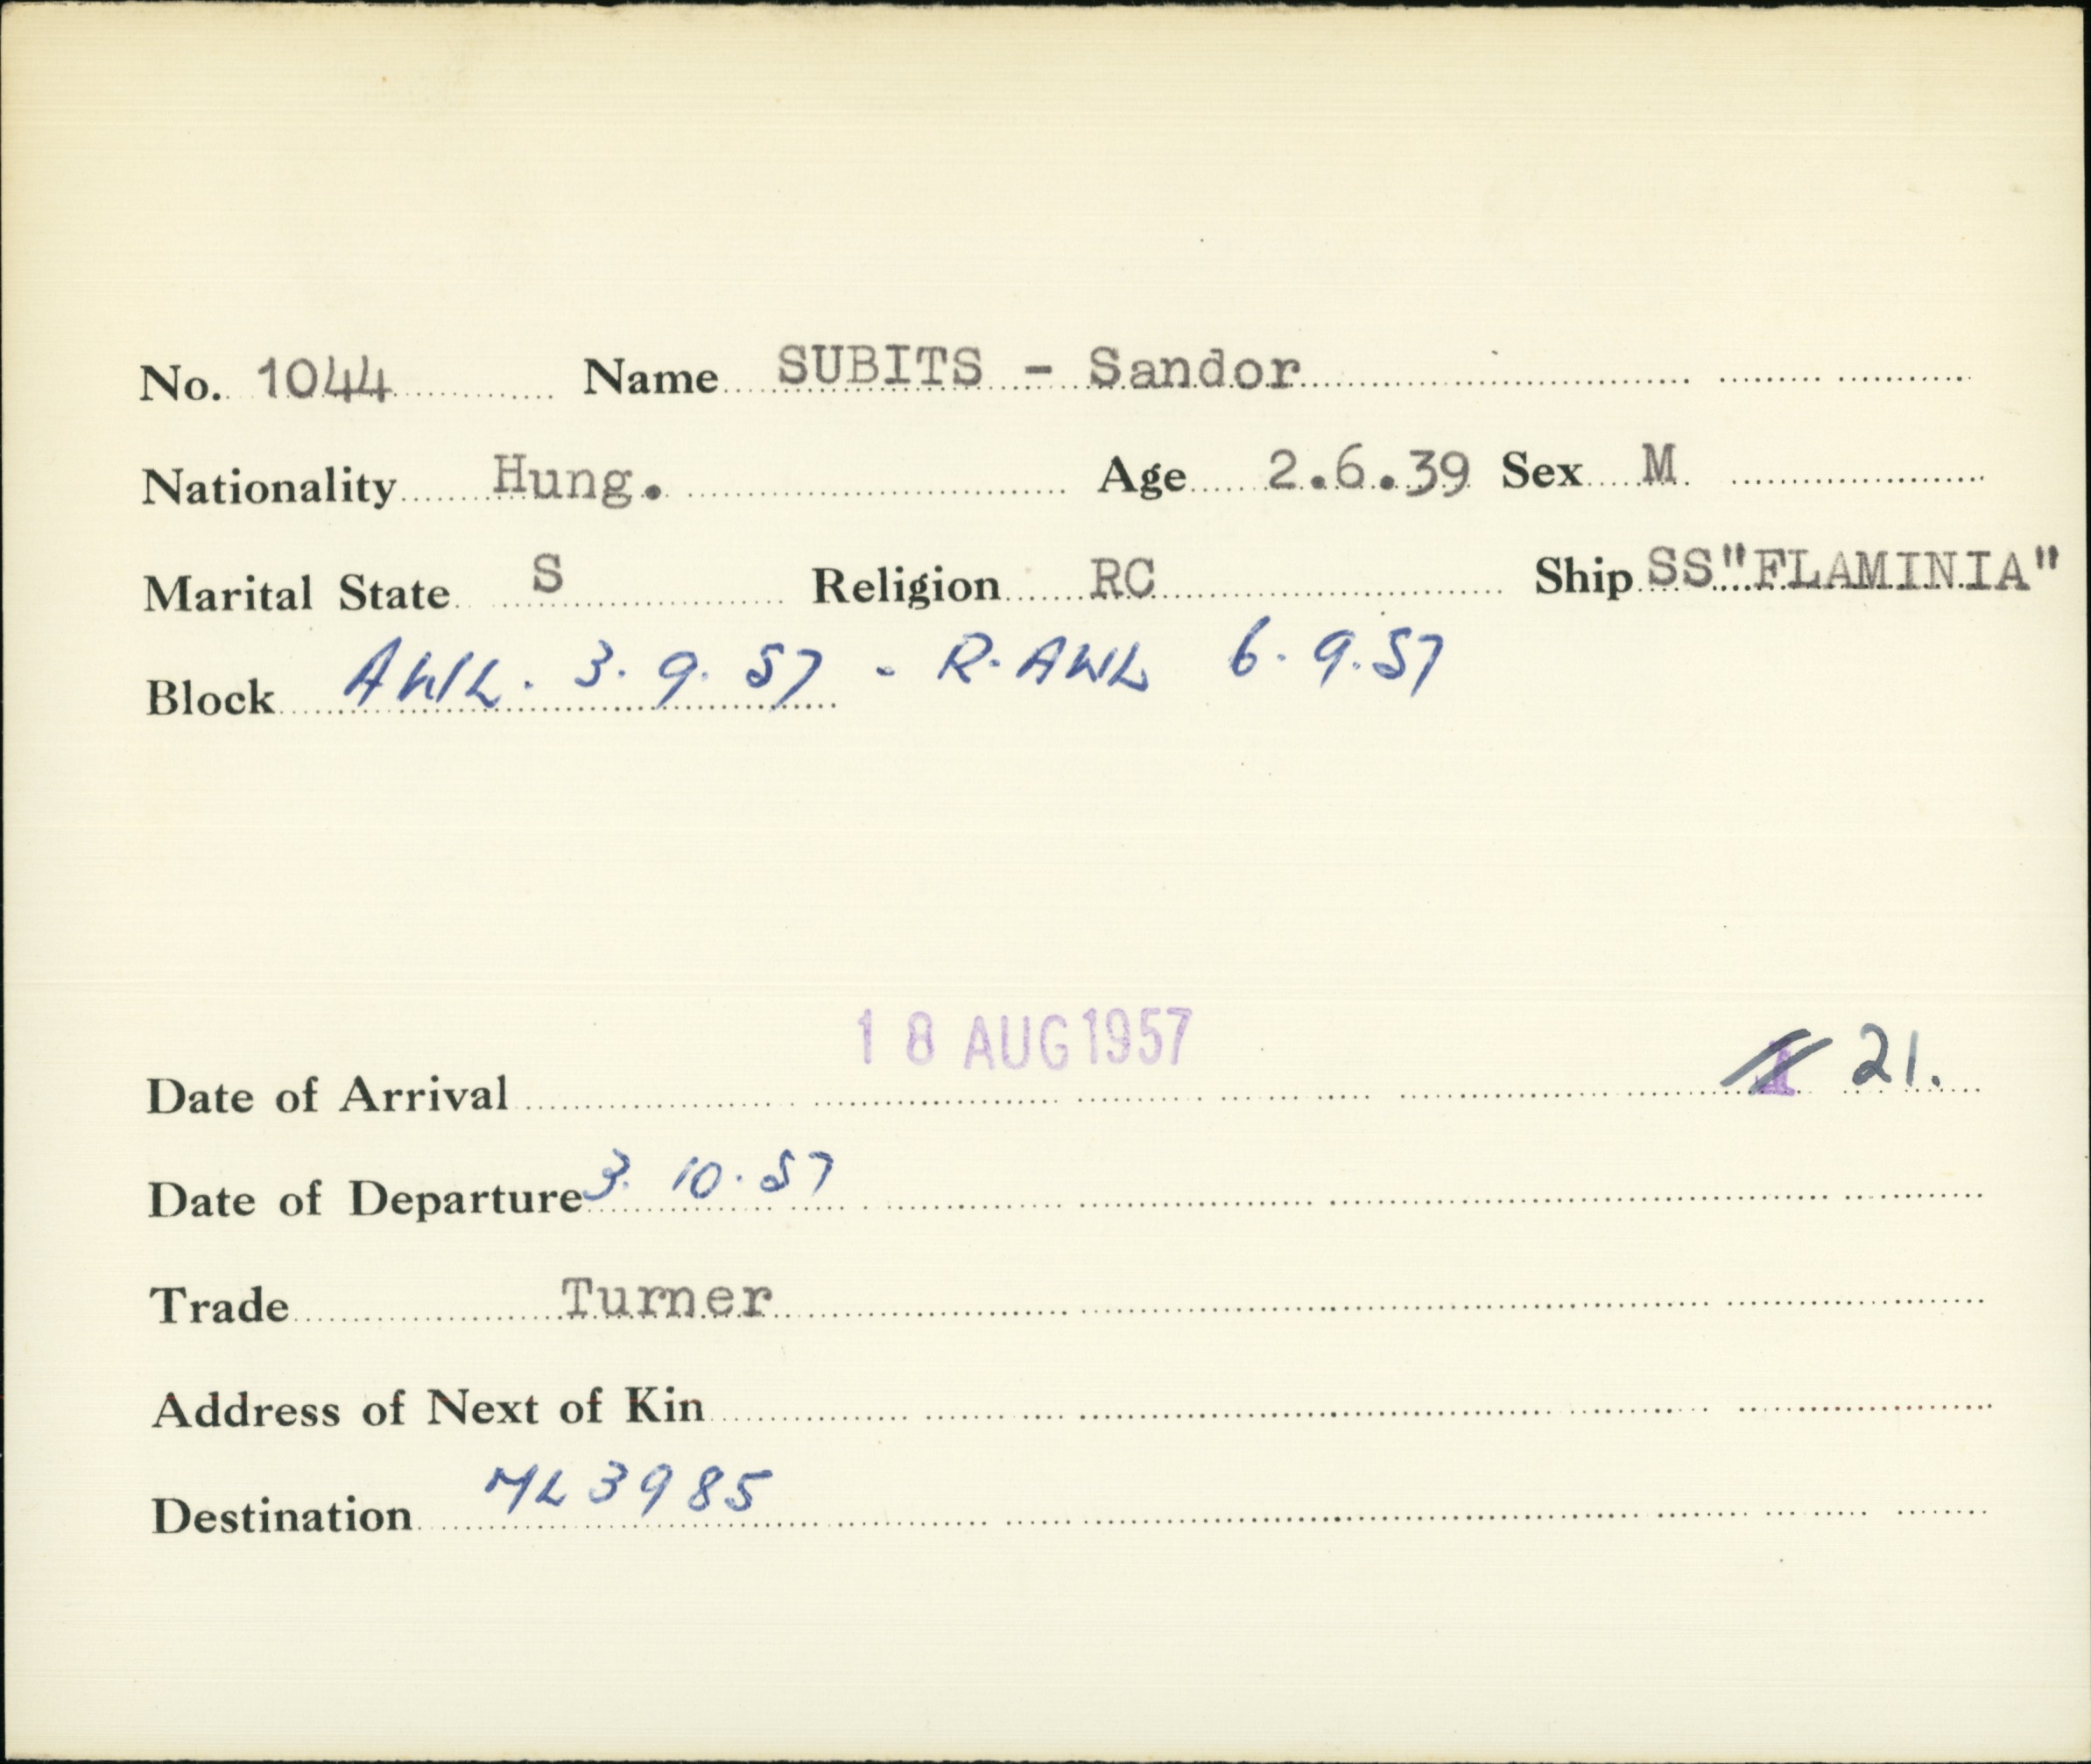 No. 1044 Name SUBITS - Sandor
Nationality Hung. Age 2.6.39 Sex M
Marital State S Religion RC Ship SS"FLAMINIA"
Block AWL. 3.9.57 - R.AWL 6.9.57
18 AUG 1957
Date of Arrival 1 21.
Date of Departure 3.10.57
Trade Turner
Address of Next of Kin
Destination ML3985